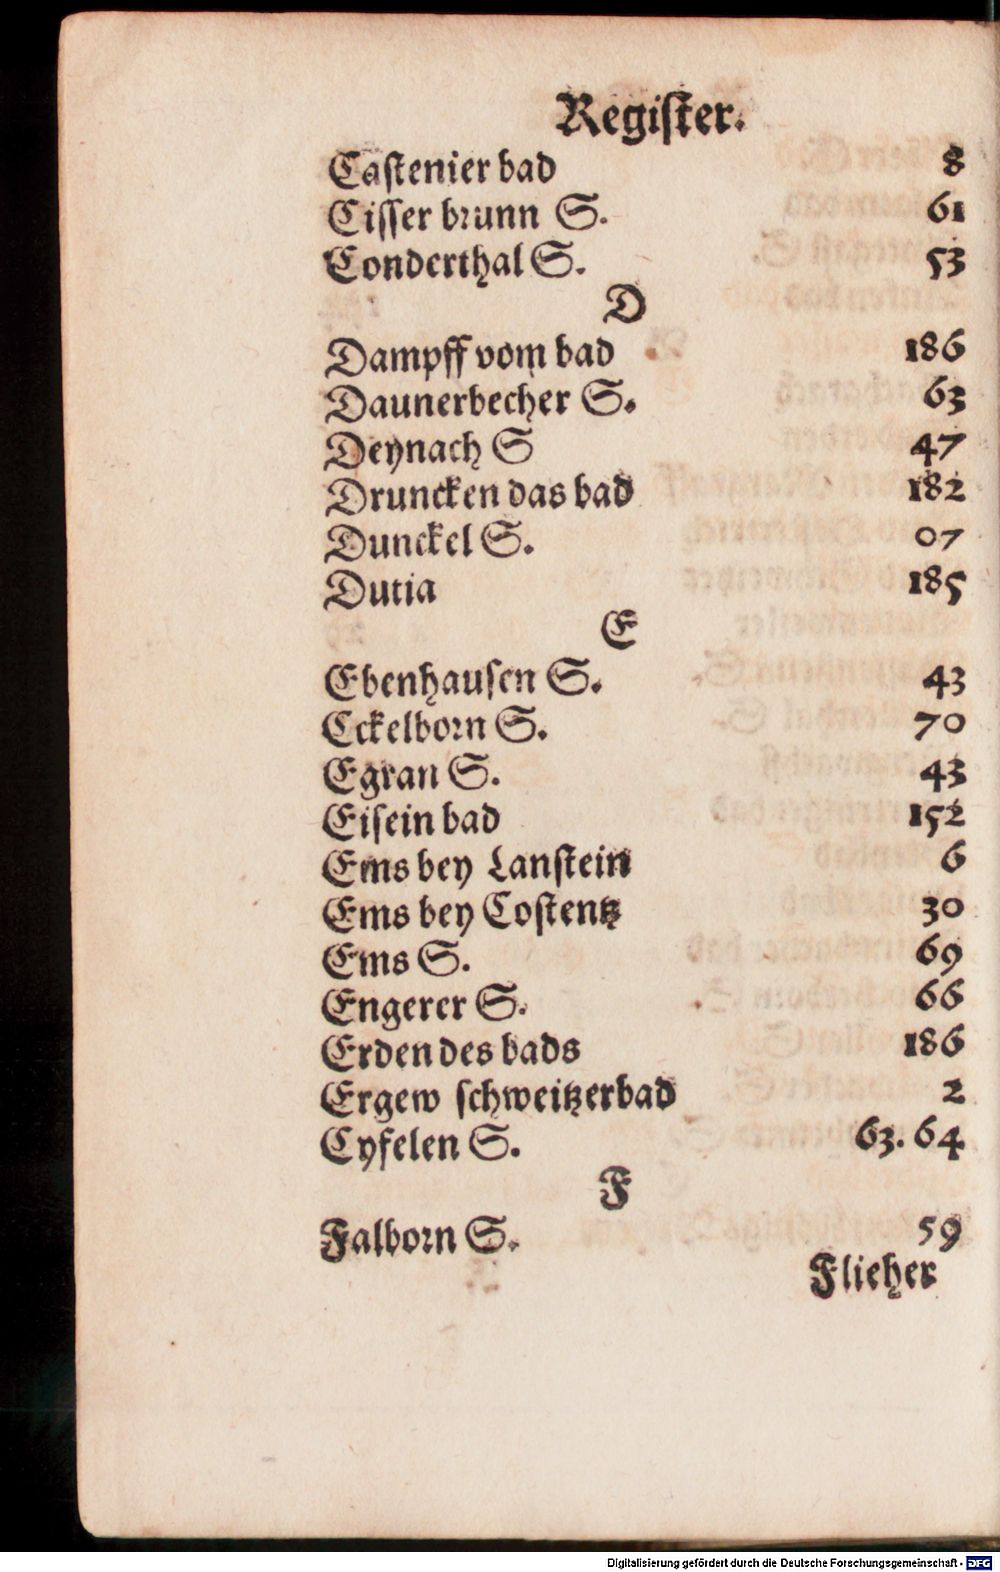 Regiſter.
Caſtenier bad 8
Ciſſer brunn S. 61
Conderthal S. 53
D
Dampff vom bad 186
Daunerbecher S. 63
Deynach S 47
Druncken das bad 182
Dunckel S. 07
Dutia 185
E
Ebenhauſen S. 43
Eckelborn S. 70
Egran S. 43
Eiſein bad 152
Ems bey Lanſtein 6
Ems bey Coſtentz 30
Ems S. 69
Engerer S. 66
Erden des bads 186
Ergew ſchweitzerbad 2
Eyfelen S. 63. 64
F
Falborn S. 59
Flieher
Digitalisierung gefördert durch die Deutsche Forschungsgemeinschaft - DFG